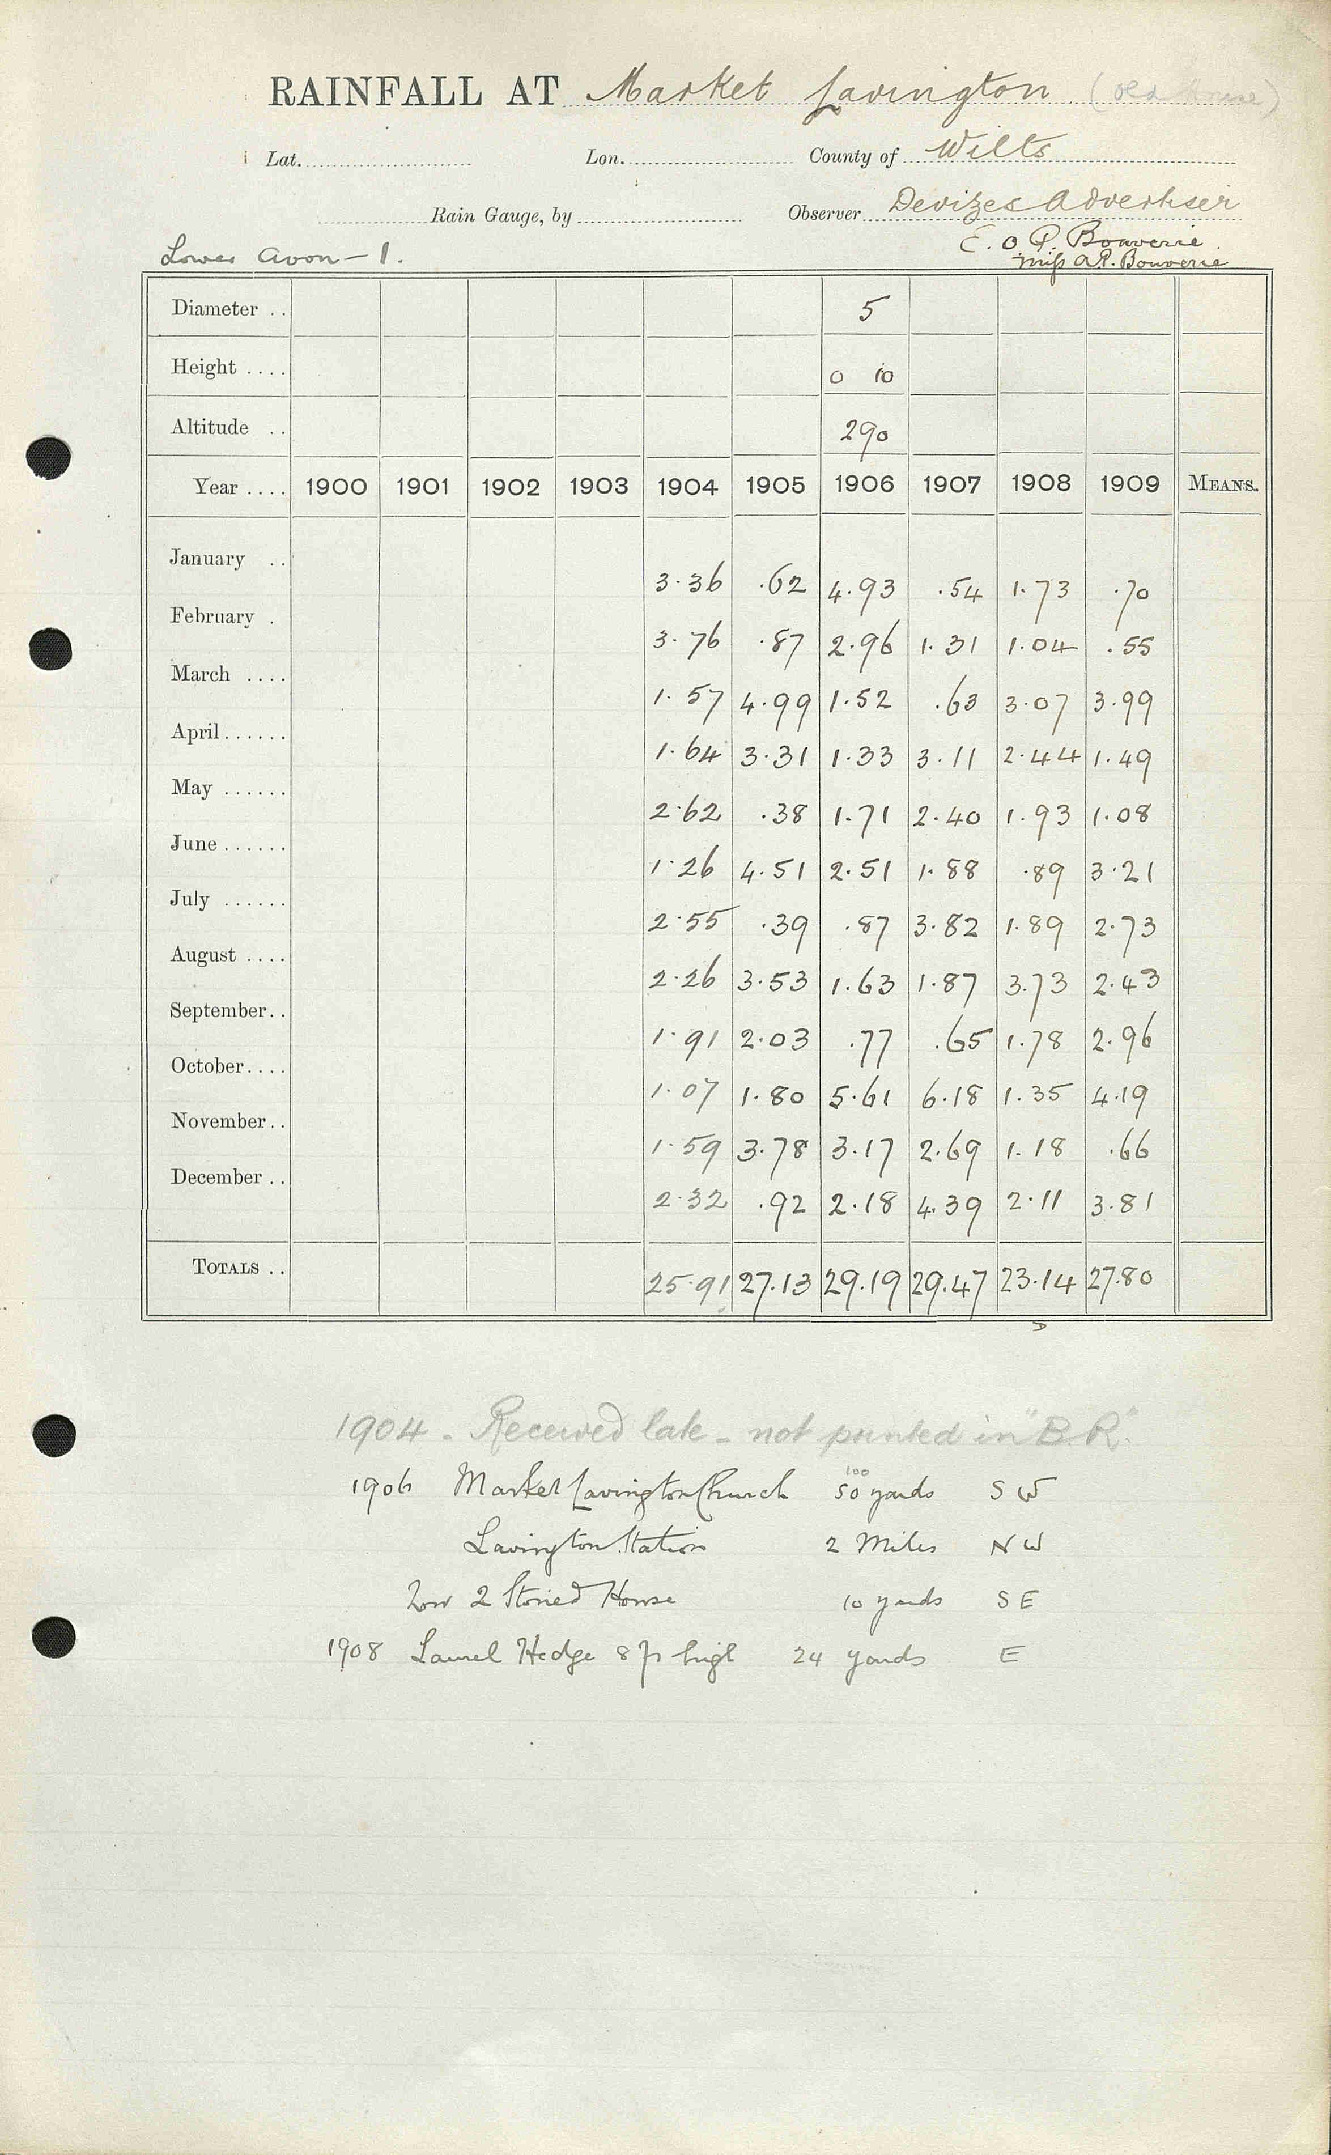 RAINFALL AT Market Lavington (old house)
Lat. Lon. County of Wilts
Rain Gauge, by Observer Devizes Advertiser
E. O. P. Bouverie
Lower Avon - 1. Miss A.P. Bouverie
Diameter .. 5
Height .... 0 10
Altitude .. 290
Year .... 1900 1901 1902 1903 1904 1905 1906 1907 1908 1909 MEANS.
January .. 3.36 .62 4.93 .54 1.73 .70
February . 3.76 .87 2.96 1.31 1.04 .55
March .... 1.57 4.99 1.52 .63 3.07 3.99
April...... 1.64 3.31 1.33 3.11 2.44 1.49
May ...... 2.62 .38 1.71 2.40 1.93 1.08
June ...... 1.26 4.51 2.51 1.88 .89 3.21
July ...... 2.55 .39 .87 3.82 1.89 2.73
August .... 2.26 3.53 1.63 1.87 3.73 2.43
September.. 1.91 2.03 .77 .65 1.78 2.96
October.... 1.07 1.80 5.61 6.18 1.35 4.19
November.. 1.59 3.78 3.17 2.69 1.18 .66
December .. 2.32 .92 2.18 4.39 2.11 3.81
TOTALS .. 25.91 27.13 29.19 29.47 23.14 27.80
D
1904 - Received late - not printed in "B.R."
100
1906 Market Lavington Church 50 yards S W
Lavington Station 2 Miles N W
Low 2 Storied House 10 yards S E
1908 Laurel Hedge 8 ft high 24 yards E